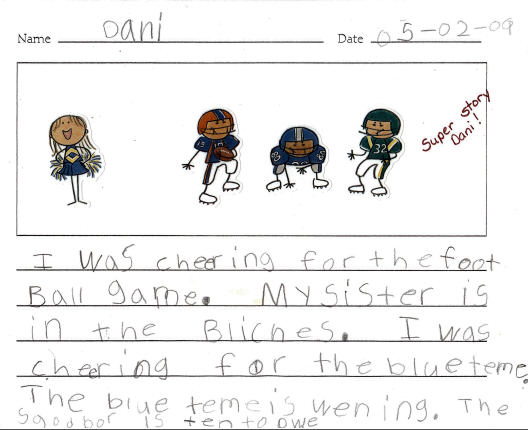 Name Dani Date 05-02-09
Super story
Dani!
32
I was cheering for the foot
Ball game. My sister is
in the Bliches. I was
cheering for the blue teme.
The blue teme is wening. The
sgoobor is ten to owe